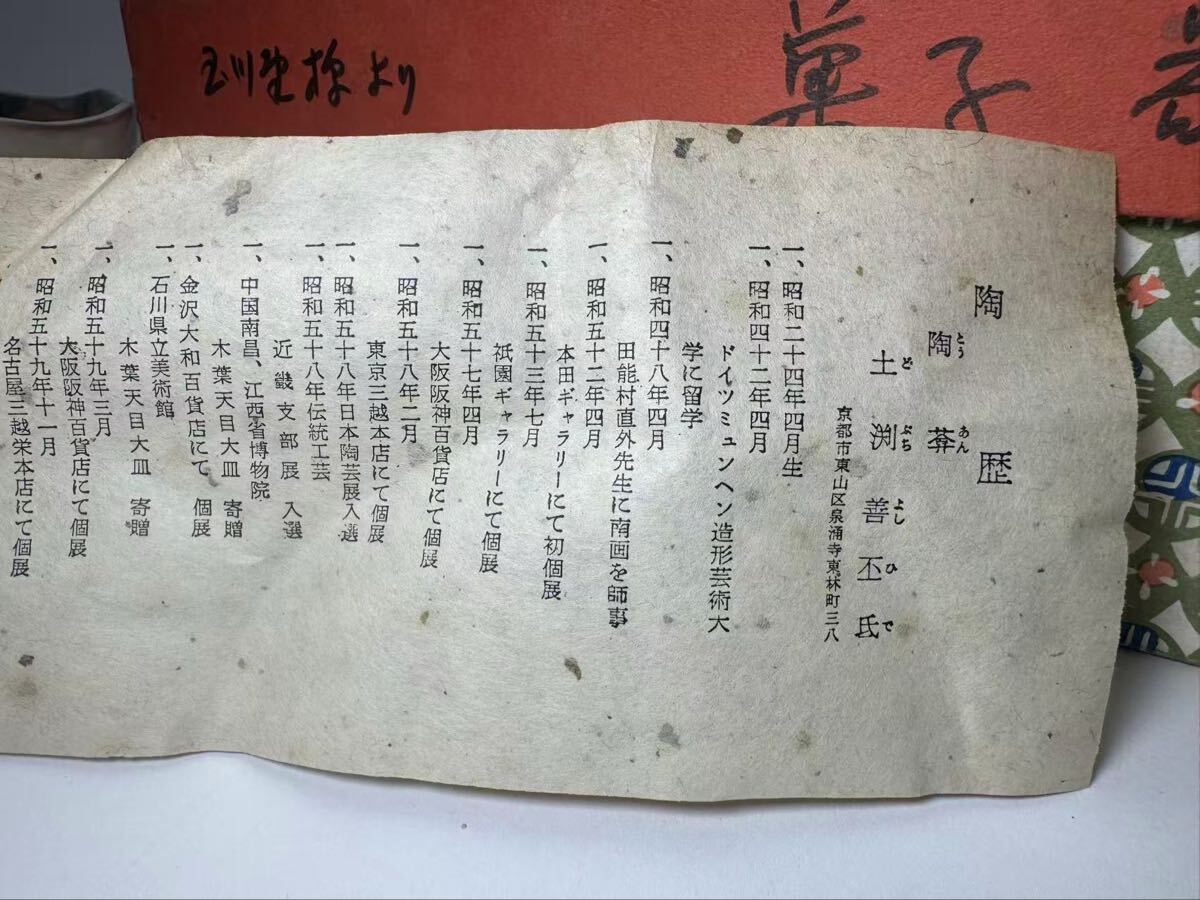 菓子
様より
陶歴
とうあん
陶葊
どぶちよしひで
土渕善丕氏
京都市東山区泉涌寺東林町三八
一、昭和二十四年四月生
一、昭和四十二年四月
ドイツミュンヘン造形芸術大
学に留学
一、昭和四十八年四月
田能村直外先生に南画を師事
一、昭和五十二年四月
本田ギャラリーにて初個展
一、昭和五十三年七月
祇園ギャラリーにて個展
一、昭和五十七年四月
大阪阪神百貨店にて個展
一、昭和五十八年二月
東京三越本店にて個展
一、昭和五十八年日本陶芸展入選
一、昭和五十八年伝統工芸
近畿支部展 入選
一、中国南昌、江西省博物院
木葉天目大皿 寄贈
一、金沢大和百貨店にて 個展
一、石川県立美術館
木葉天目大皿 寄贈
一、昭和五十九年三月
大阪阪神百貨店にて個展
一、昭和五十九年十一月
名古屋三越栄本店にて個展